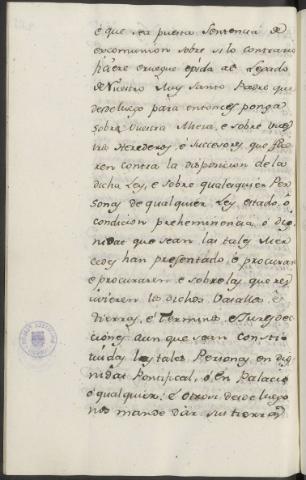 e que sea puesta Sentencia de
excomunion sobre si lo contrario
hiciere e ruegue e pida al Legado
de Nuestro Muy Santo Padre que
desde luego para entonces ponga
sobre Vuestra Alteza, e sobre vues
tros Herederos, e Successores, que
ren contra la disposicion de la
dicha Ley, e sobre qualesquier Per
sonas de qualquier Ley, estado, ó
condicion preheminencia, ó dig
nidad que sean las tales Mer
cedes han presentado, e procuran
e procuraren e sobre las que res
civieren los dichos Vasallos, e
tierras, e Terminos, e Jurisdic
ciones aunque sean consti
tuidas las tales Personas en dig
nidad Pontifical, ó en Palacio
ó qualquier; e otrosi desde luego
nos mande dar sus tierras